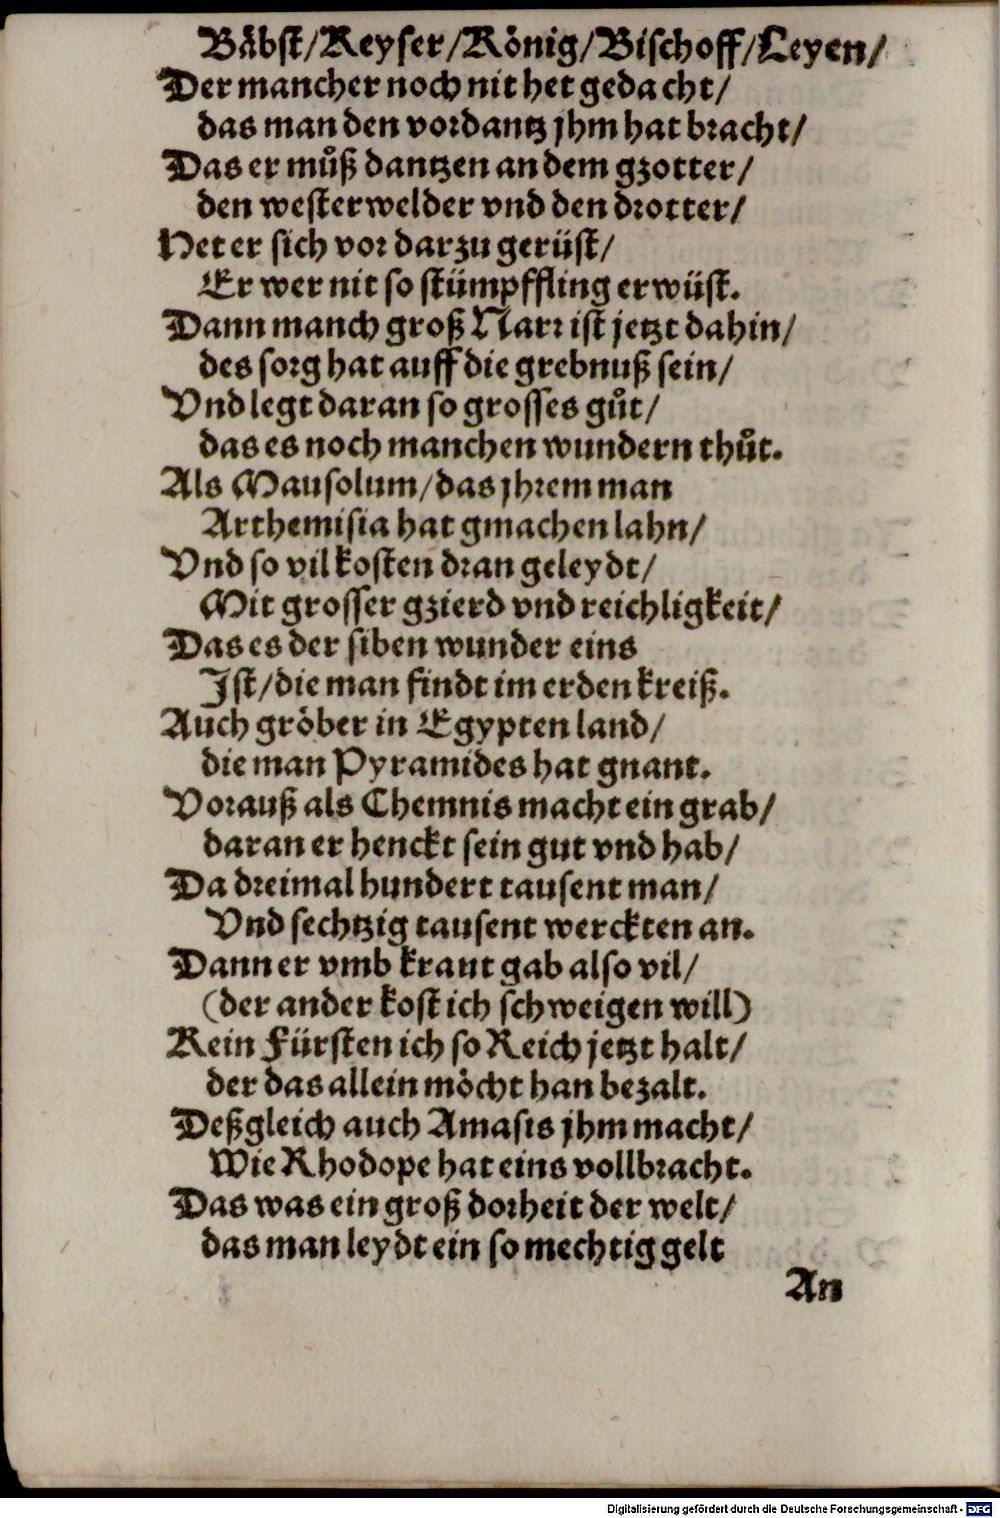 Bäbst/Keyser/König/Bischoff/Leyen/
Der mancher noch nit het gedacht/
das man den vordantz jhm hat bracht/
Das er můß dantzen an dem gzotter/
den westerwelder vnd den drotter/
Het er sich vor darzu gerüst/
Er wer nit so stümpffling erwüst.
Dann manch groß Narr ist jetzt dahin/
des sorg hat auff die grebnuß sein/
Vnd legt daran so grosses gůt/
das es noch manchen wundern thůt.
Als Mausolum/das jhrem man
Arthemisia hat gmachen lahn/
Vnd so vil kosten dran geleydt/
Mit grosser gzierd vnd reichligkeit/
Das es der siben wunder eins
Ist/die man findt im erden kreiß.
Auch gröber in Egypten land/
die man Pyramides hat gnant.
Vorauß als Chemnis macht ein grab/
daran er henckt sein gut vnd hab/
Da dreimal hundert tausent man/
Vnd sechtzig tausent werckten an.
Dann er vmb kraut gab also vil/
(der ander kost ich schweigen will)
Kein Fürsten ich so Reich jetzt halt/
der das allein möcht han bezalt.
Deßgleich auch Amasis jhm macht/
Wie Rhodope hat eins vollbracht.
Das was ein groß dorheit der welt/
das man leydt ein so mechtig gelt
An
Digitalisierung gefördert durch die Deutsche Forschungsgemeinschaft - DFG